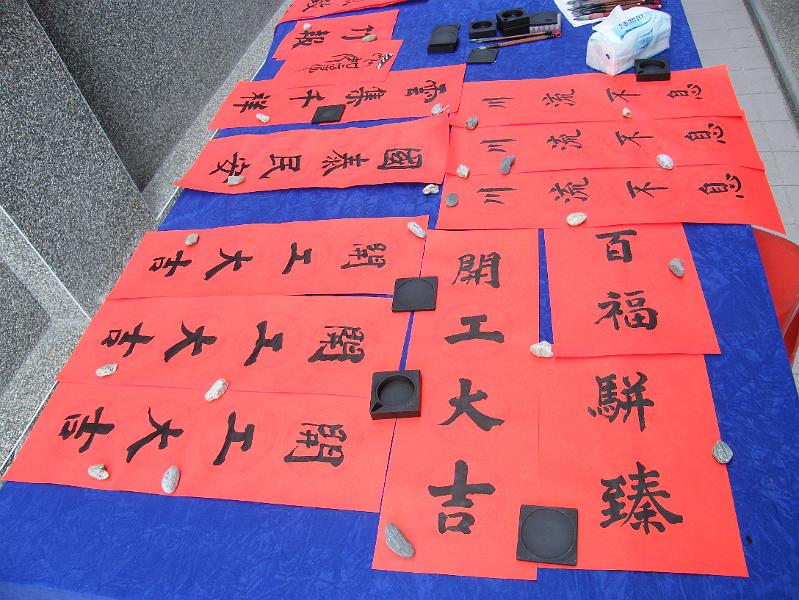 竹報
雲集千祥
國泰民安
川流不息
川流不息
川流不息
開工大吉
開工大吉
開工大吉
開工大吉
百福駢臻